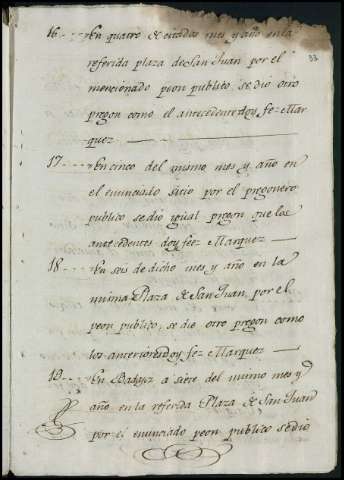 32
16 En quatro de citados mes y año en la
referida plaza de San Juan por el
mencionado peon publico se dio otro
pregon como el antecedente doy fee Mar
quez
17 En cinco del mismo mes y año en
el enunciado sitio por el pregonero
publico se dio igual pregon que los
antecedentes doy fee Marquez
18 En seis de dicho mes y año en la
misma Plaza de San Juan, por el
peon publico, se dio otro pregon como
los anteriores doy fee Marquez
19 En Badajz a siete del mismo mes y
año en la referida Plaza de San Juan
por el enunciado peon publico se dio